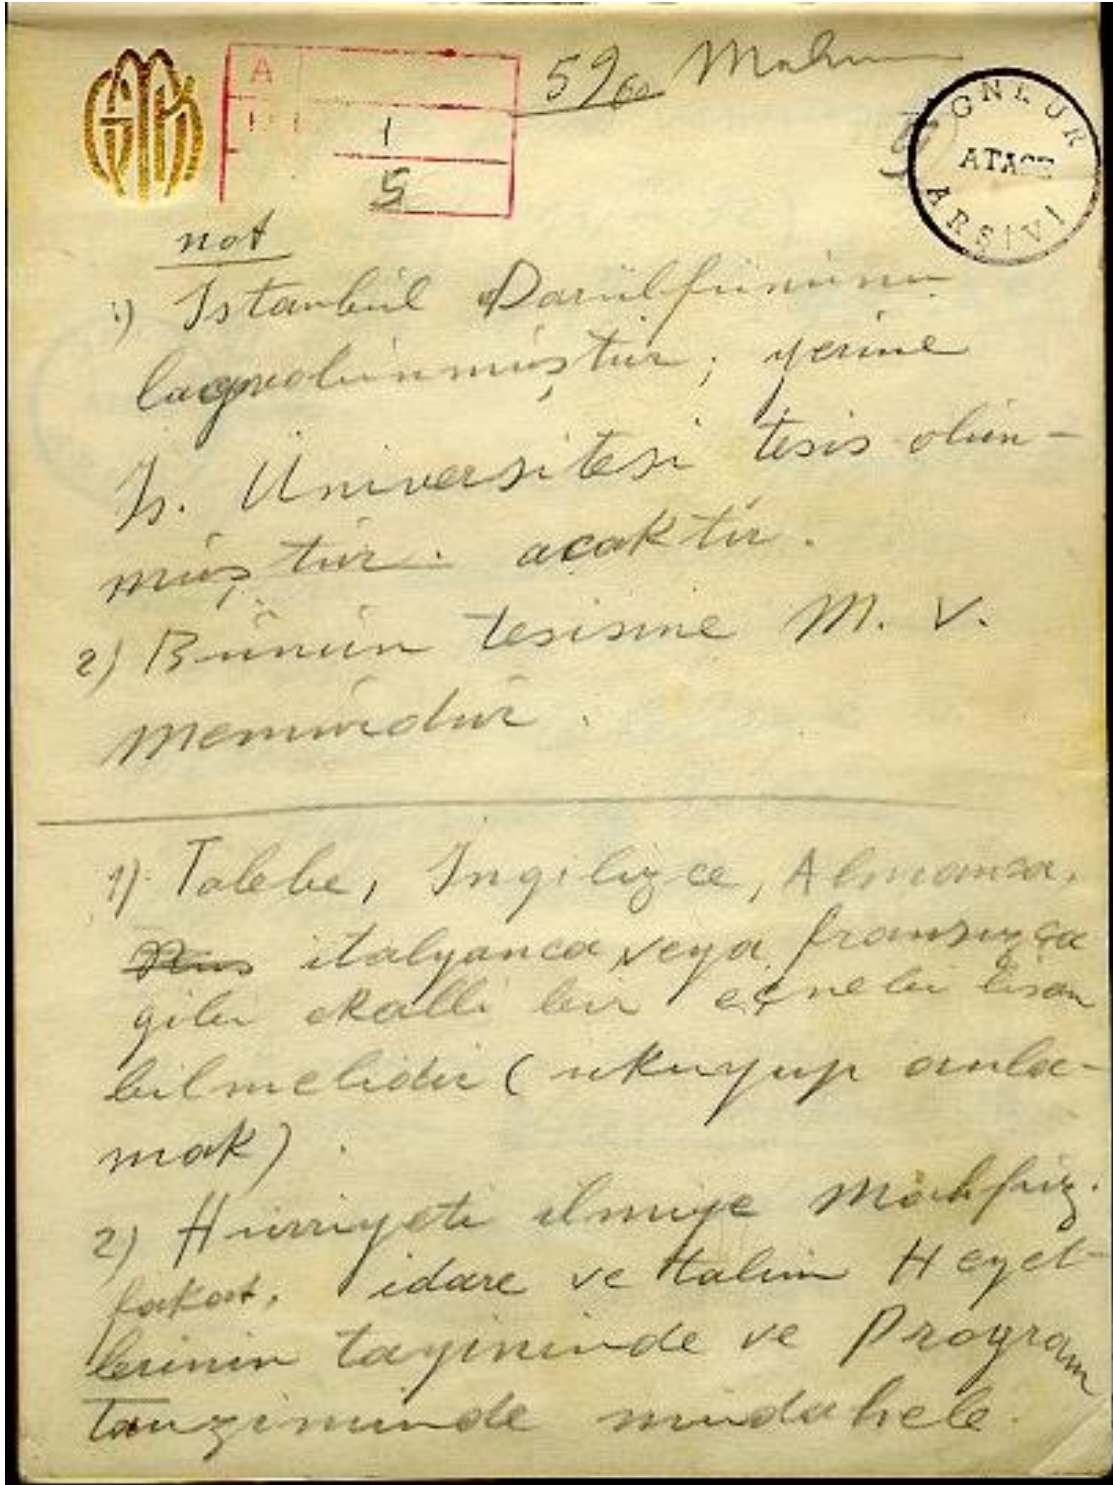 A
1
5
GNKUR
ATASE
ARŞİVİ
not
1) Istanbul Darülfünunu
lagvolunmuştur; yerine
Is. Üniversitesi tesis olun-
muştur. acaktır.
2) Bunun tesisine M. V.
memurdur.
1) Talebe, Ingilizce, Almanca,
italyanca veya fransızca
gibi ekalli bir ecnebi lisan
bilmelidir (okuyup anla-
mak).
2) Hürriyeti ilmiye mahfuz.
fakat, idare ve talim Heyet-
lerinin tayininde ve Program
tanziminde müdahele.